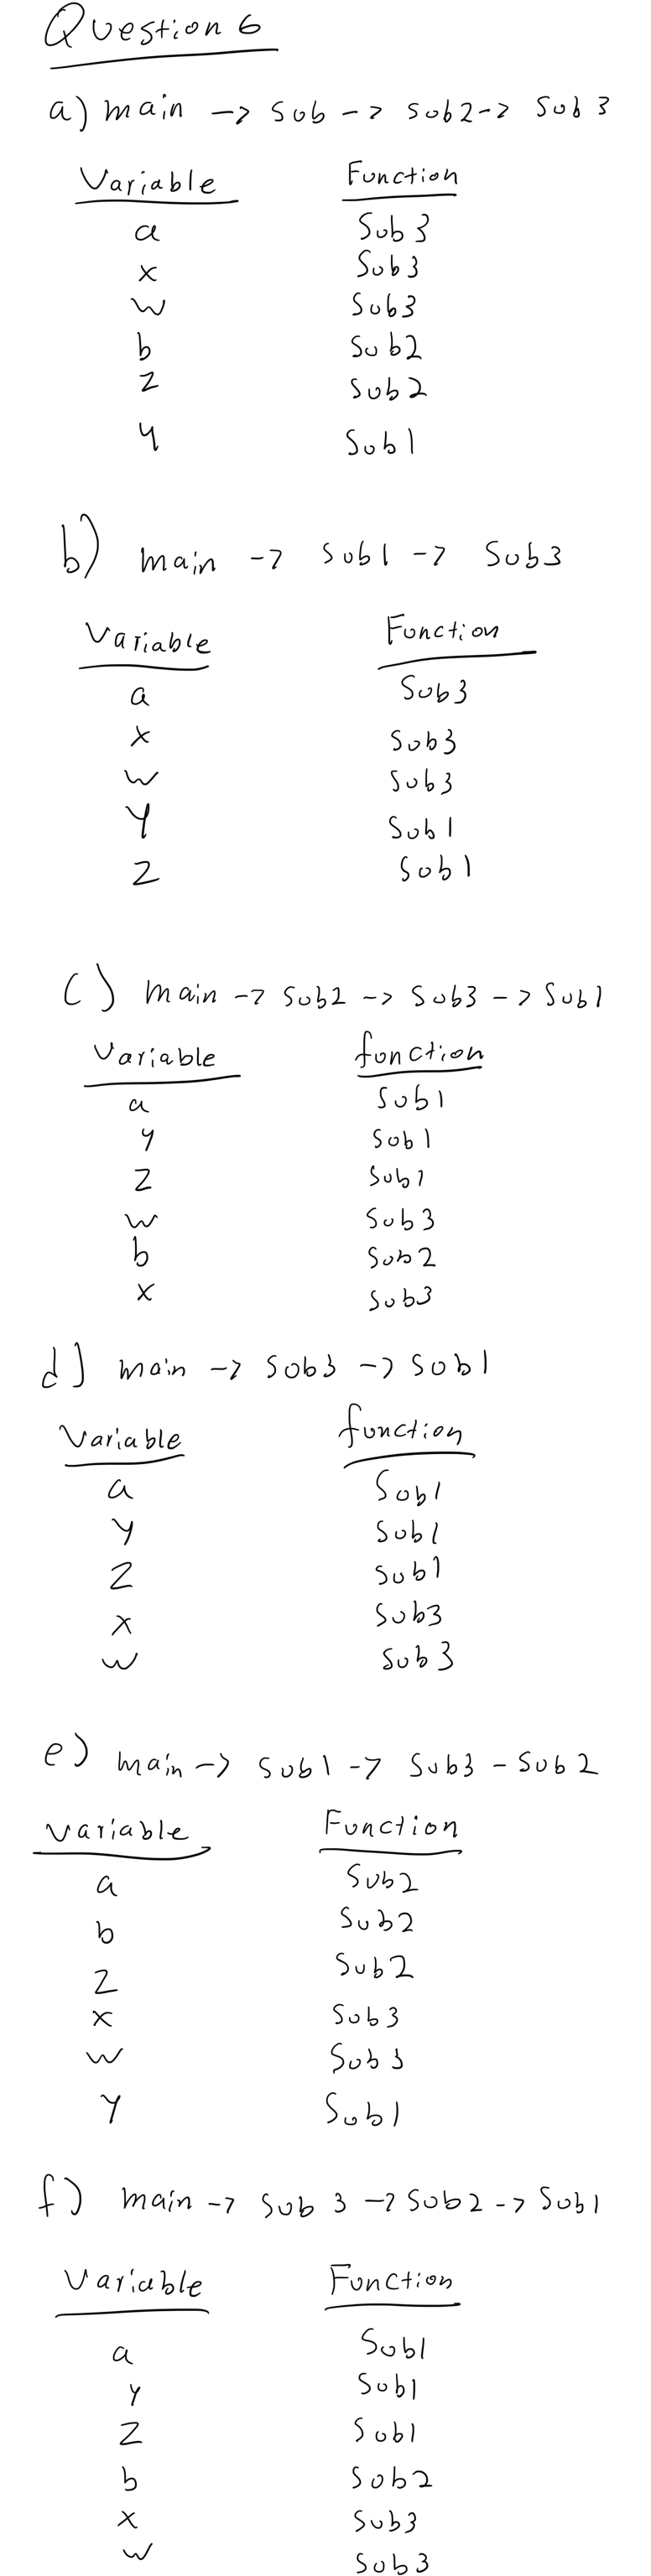 Question 6
a) main -> Sub -> Sub2 -> Sub 3
Variable Function
a Sub 3
x Sub3
w Sub3
b Sub2
z Sub2
y Sub1
b) main -> Sub1 -> Sub3
Variable Function
a Sub3
x Sub3
w Sub3
Y Sub1
Z Sub1
c) main -> Sub2 -> Sub3 -> Sub1
Variable function
a Sub1
y Sub1
Z Sub1
w Sub3
b Sub2
x Sub3
d) main -> Sub3 -> Sub1
Variable function
a Sub1
y Sub1
Z Sub1
x Sub3
w Sub3
e) main -> Sub1 -> Sub3 - Sub2
Variable Function
a Sub2
b Sub2
Z Sub2
x Sub3
w Sub3
Y Sub1
f) main -> Sub 3 -> Sub2 -> Sub1
Variable Function
a Sub1
Y Sub1
Z Sub1
b Sub2
x Sub3
w Sub3